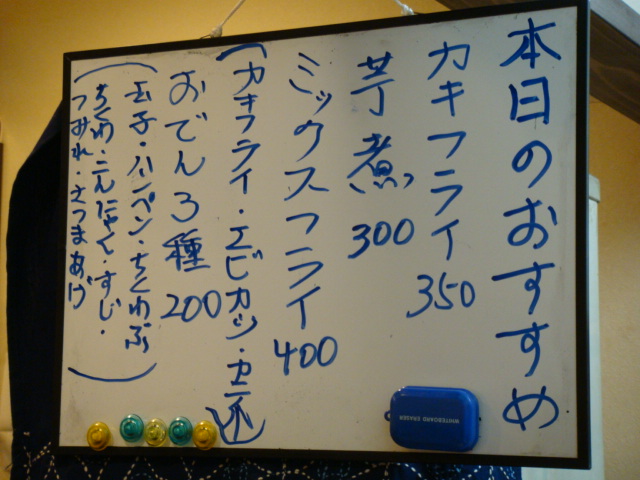 本日のおすすめ
カキフライ 350
芋煮 300
ミックスフライ 400
(カキフライ・エビカツ・
おでん3種 200
(玉子・ハンペン・ちくわぶ
ちくわ・こんにゃく・すじ・
つみれ・さつまあげ)
WHITEBOARD ERASER